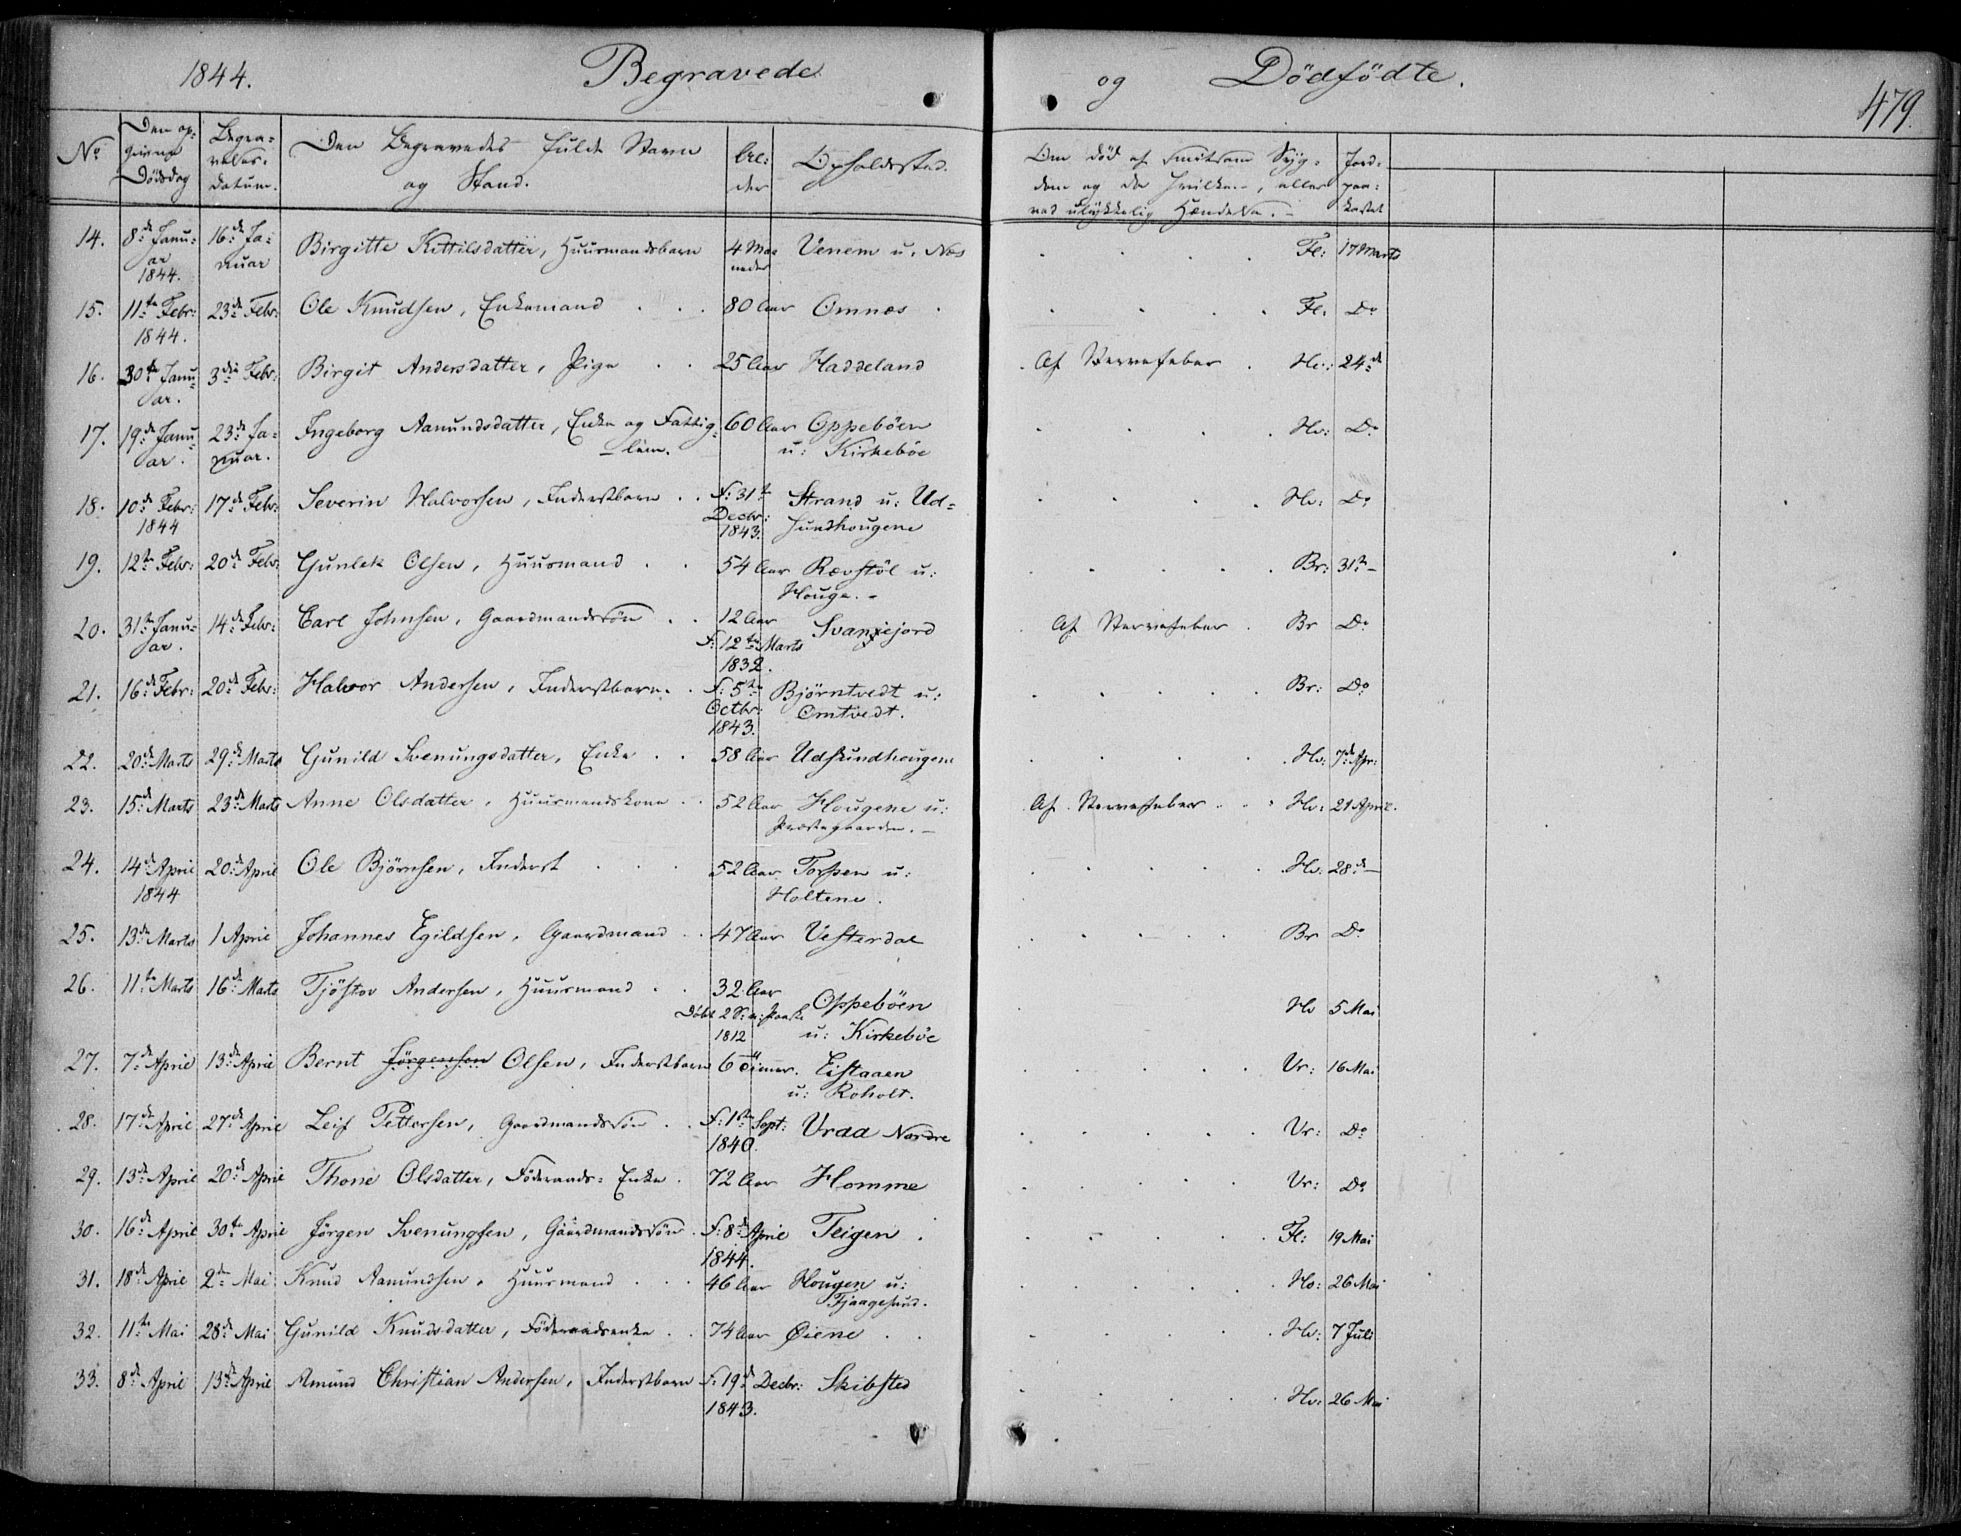 1844. Begravede og Dödfödte. 479.
No Den opgivne Dödsdag Begravelses-datum. Den Begravedes fulde Navn og Stand. Alder Opholdssted. Om död af smitsom Sygdom og da hvilken, eller ved ulykkelig Hændelse. Jordpaakastet
14. 8de Januar 1844. 16de Januar Birgitte Kittilsdatter, Huusmandsbarn 4 Maaneder Venem u. Næs Fl: 17 Marts
15. 11te Febr: 1844. 23de Febr: Ole Knudsen, Enkemand 80 Aar Omnæs Fl. Do
16. 30te Januar. 3die Febr: Birgit Andersdatter, Pige 25 Aar Haddeland Af Nervefeber Hv: 24de
17. 19de Januar. 23de Januar. Ingeborg Aanundsdatter, Enke og Fattiglem. 60 Aar Oppeböen u: Kirkeböe Hv: Do
18. 10de Febr: 1844 17de Febr: Severin Halvorsen, Inderstbarn f: 31te Decbr: 1843. Strand u: Udsundhougene Hv: Do
19. 12te Febr: 20de Febr: Gunlek Olsen, Huusmand 54 Aar Rævstöl u: Houge. Br: 31te
20. 31te Januar. 14de Febr: Carl Johnsen, Gaardmandssön 12 Aar f: 12te Marts 1832. Svanejord Af Nervefeber Br Do
21. 16de Febr: 20de Febr: Halvor Andersen, Inderstbarn. f: 5te Octbr: 1843. Björntvedt u: Omtvedt. Br: Do
22. 20de Marts 29de Marts Gunild Svenungsdatter, Enke 58 Aar Udsundhougene Hv: 7de Apr:
23. 15de Marts 23de Marts Anne Olsdatter, Huusmandskone 52 Aar Hougene u: Præstegaarden. Af Nervefeber Hv: 21 April.
24. 14de April 1844 20de April Ole Björnsen, Inderst 52 Aar Torsen u: Holtene. Hv: 28de
25. 13de Marts 1 April Johannes Egildsen, Gaardmand 47 Aar Vesterdal Br Do
26. 11te Marts 16de Marts Tjöstov Andersen, Huusmand 32 Aar Döbt 2 S: e: Paaske 1812 Oppeböen u: Kirkeböe Hv 5 Mai
27. 7de April 13de April Bernt Jörgensen Olsen, Inderstbarn 6 Timer. Eistaaen u: Roholt. Vr: 16 Mai
28. 17de April 27de April Leif Pettersen, Gaardmandssön f: 1ste Sept: 1840. Vraa Nordre Vr: Do
29. 13de April 20de April Thone Olsdatter, Föderaads-Enke 72 Aar Homme Vr: Do
30. 16de April 30te April Jörgen Svenungsen, Gaardmandssön f: 8de April 1844. Teigen Fl: 19 Mai
31. 18de April 2den Mai Knud Aanundsen, Huusmand 46 Aar Hougen u: Fjaagesund. Hv: 26 Mai
32. 11te Mai 28de Mai Gunild Knudsdatter, Föderaadsenke 74 Aar Øiene Hv: 7 Juli
33. 8de April 13de April Amund Christian Andersen, Inderstbarn f: 19de Decbr: 1843. Skibsted Hv: 26 Mai